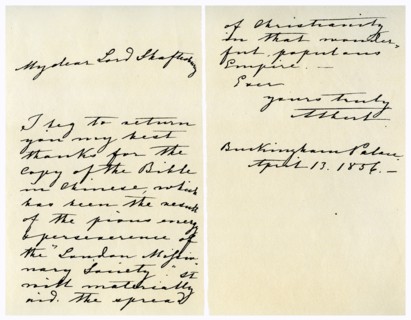 My dear Lord Shaftesbury
I beg to return
you my best
thanks for the
Copy of the Bible
in Chinese, which
has been the result
of the pious energy
& perseverance of
the "London Missio-
nary Society". It
will materially
aid the spread
of Christianity
in that wonder-
ful, populous
Empire. —
Ever
yours truly
Albert
Buckingham Palace.
April 13. 1856. —